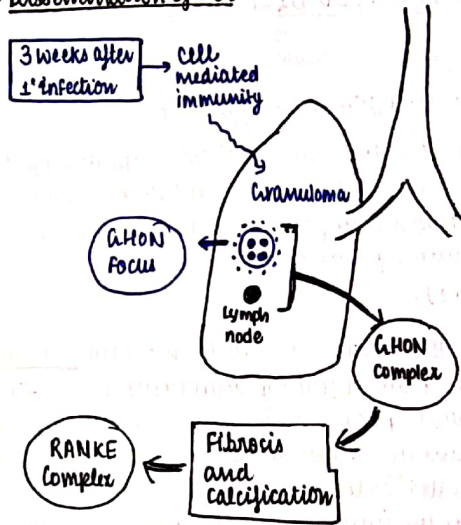 3 weeks after
1° infection
cell
mediated
immunity
Granuloma
GHON
FOCUS
Lymph
node
GHON
Complex
Fibrosis
and
calcification
RANKE
Complex